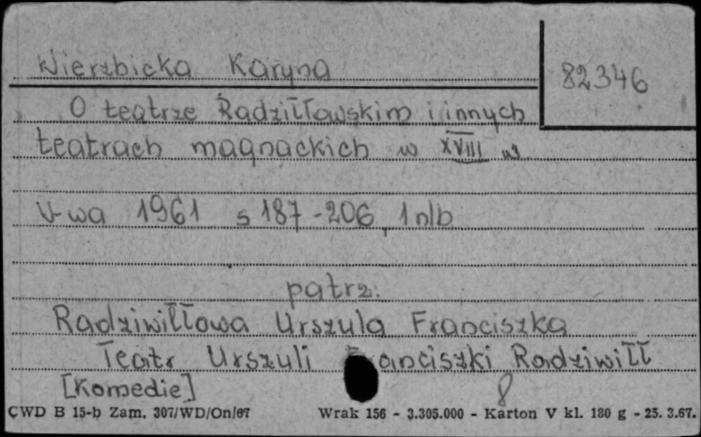 Wierzbicka Karyna
82346
O teatrze Radziłłowskim i innych
teatrach magnackich w XVIII w
V-wa 1961 s 187-206, 1 nlb
patrz:
Radziwiłłowa Urszula Franciszka
Teatr Urszuli Franciszki Radziwiłł
[Komedie] 8
CWD B 15-b Zam. 307/WD/On/67 Wrak 156 - 3.305.000 - Karton V kl. 180 g - 25. 3.67.